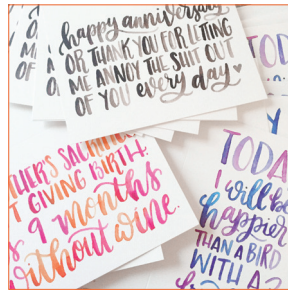 happy anniversary
OR THANK YOU FOR LETTING
ME ANNOY THE SHIT OUT
OF YOU every day
SACRIFICE
GIVING BIRTH.
9 months
without wine.
TODAY
I will be
happier
THAN A BIRD
WITH A